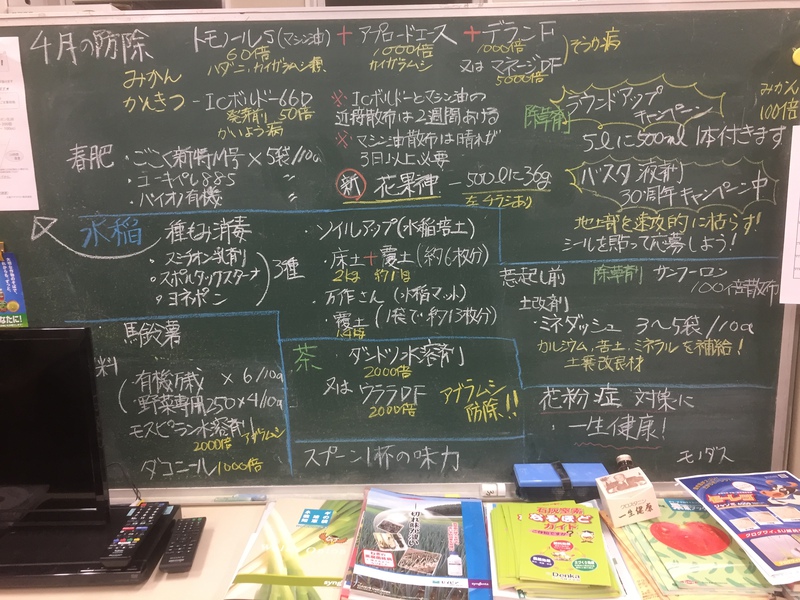 4月の防除
トモノールS(マシン油) + アプロードエース + デランF
60倍 1000倍 1000倍
ハダニ、カイガラムシ類 カイガラムシ 又はマネージDF
5000倍
そうか病
みかん
かんきつ - ICボルドー66D
50倍
かいよう病
※ICボルドーとマシン油の
近接散布は2週間あける
※マシン油散布は晴れが
3日以上必要
春肥・ごこく新特M号×5袋/10a
・ユーキペレ885 〃
・バイオノ有機 〃
新 花果神 - 500ℓに36g
除草剤
ラウンドアップ
キャンペーン
5ℓに500ml 1本付きます
みかん
100倍
バスタ液剤
30周年キャンペーン中
地上部を速攻的に枯らす!
シールを貼って応募しよう!
水稲 種もみ消毒
・スミチオン乳剤
・スポルタックスターナ
・ヨネポン
3種
・ソイルアップ(水稲培土)
・床土+覆土(約6枚分)
・万作さん(水稲マット)
・覆土(1袋で約13枚分)
萌起し前 除草剤 サンフーロン
100倍散布
土改剤
・ミネダッシュ 3〜5袋/10a
カルシウム、苦土、ミネラルを補給!
土壌改良材
馬鈴薯
料
有機万栽 × 6/10a
野菜専用250×4/10a
モスピラン水溶剤
2000倍 アブラムシ
ダコニール1000倍
茶・ダントツ水溶剤
2000倍
又は ウララDF
2000倍
アブラムシ
防除!!
スプーン1杯の味力
花粉症 対策に
・一生健康!
モノダス
一生健康
有機窒素
なるほど
ガイド
Denka